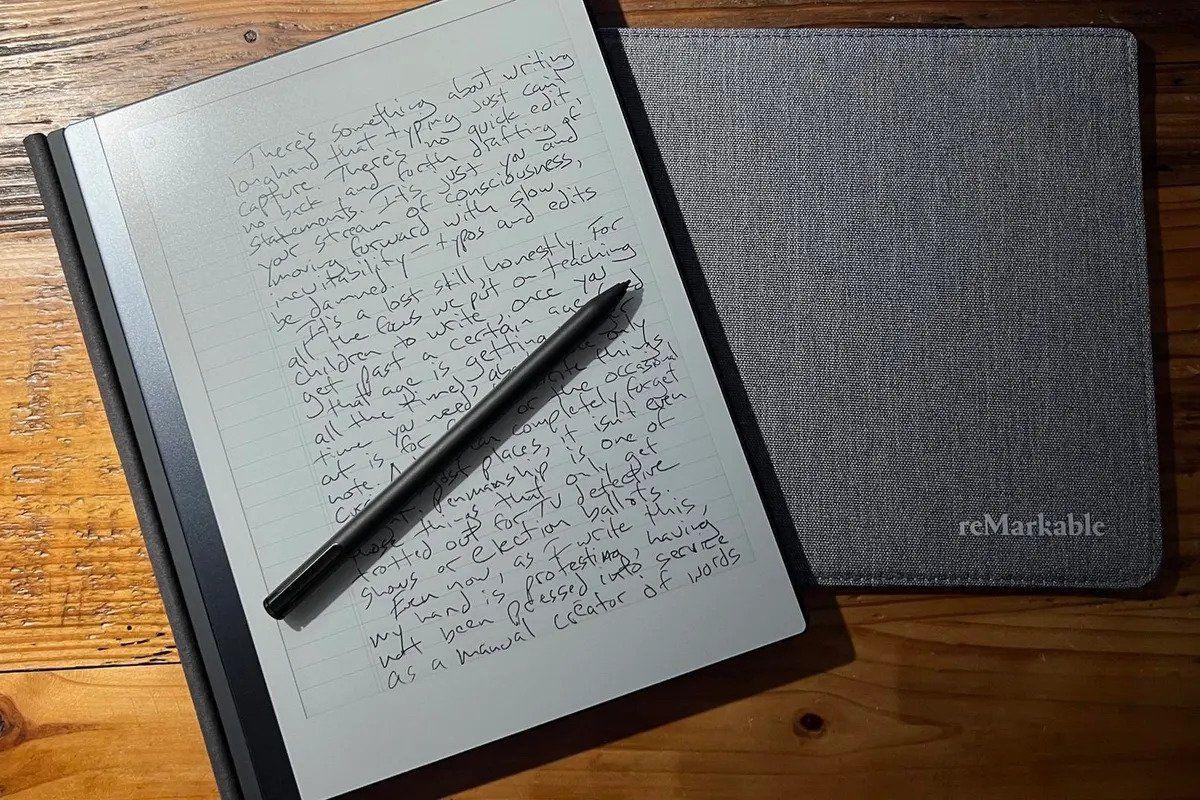 There's something about writing
longhand that typing just can't
capture. There's no quick edit,
no back and forth drafting of
statements. It's just you and
your stream of consciousness,
moving forward with slow,
inevitability – typos and edits
be damned.
It's a lost still, honestly. For
all the focus we put on teaching
children to write, once you
get past a certain age (and
that age is getting
all the time), about the only
time you need write things
out is for or the occasional
note. completely forget
just places, it isn't even
Penmanship is one of
those things that only get
trotted out for TV detective
shows or election ballots.
Even now, as I write this,
my hand is protesting, having
not been pressed into service
as a manual creator of words
reMarkable